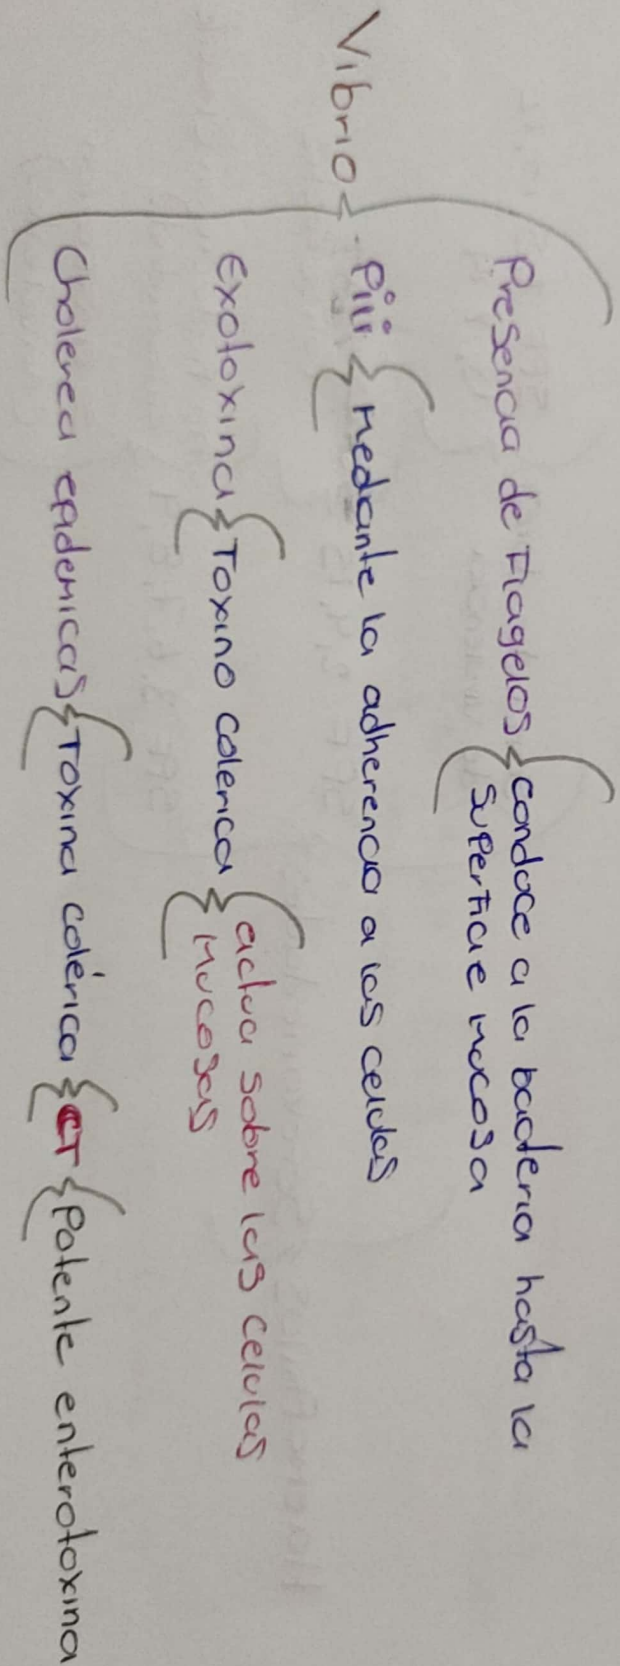 Vibrio
Presencia de Flagelos
conduce a la bacteria hasta la
superficie mucosa
Pili
mediante la adherencia a las celulas
Exotoxina
Toxina colerica
actua sobre las celulas
mucosas
Cholerea epidemicas
Toxina colérica
CT
Potente enterotoxina